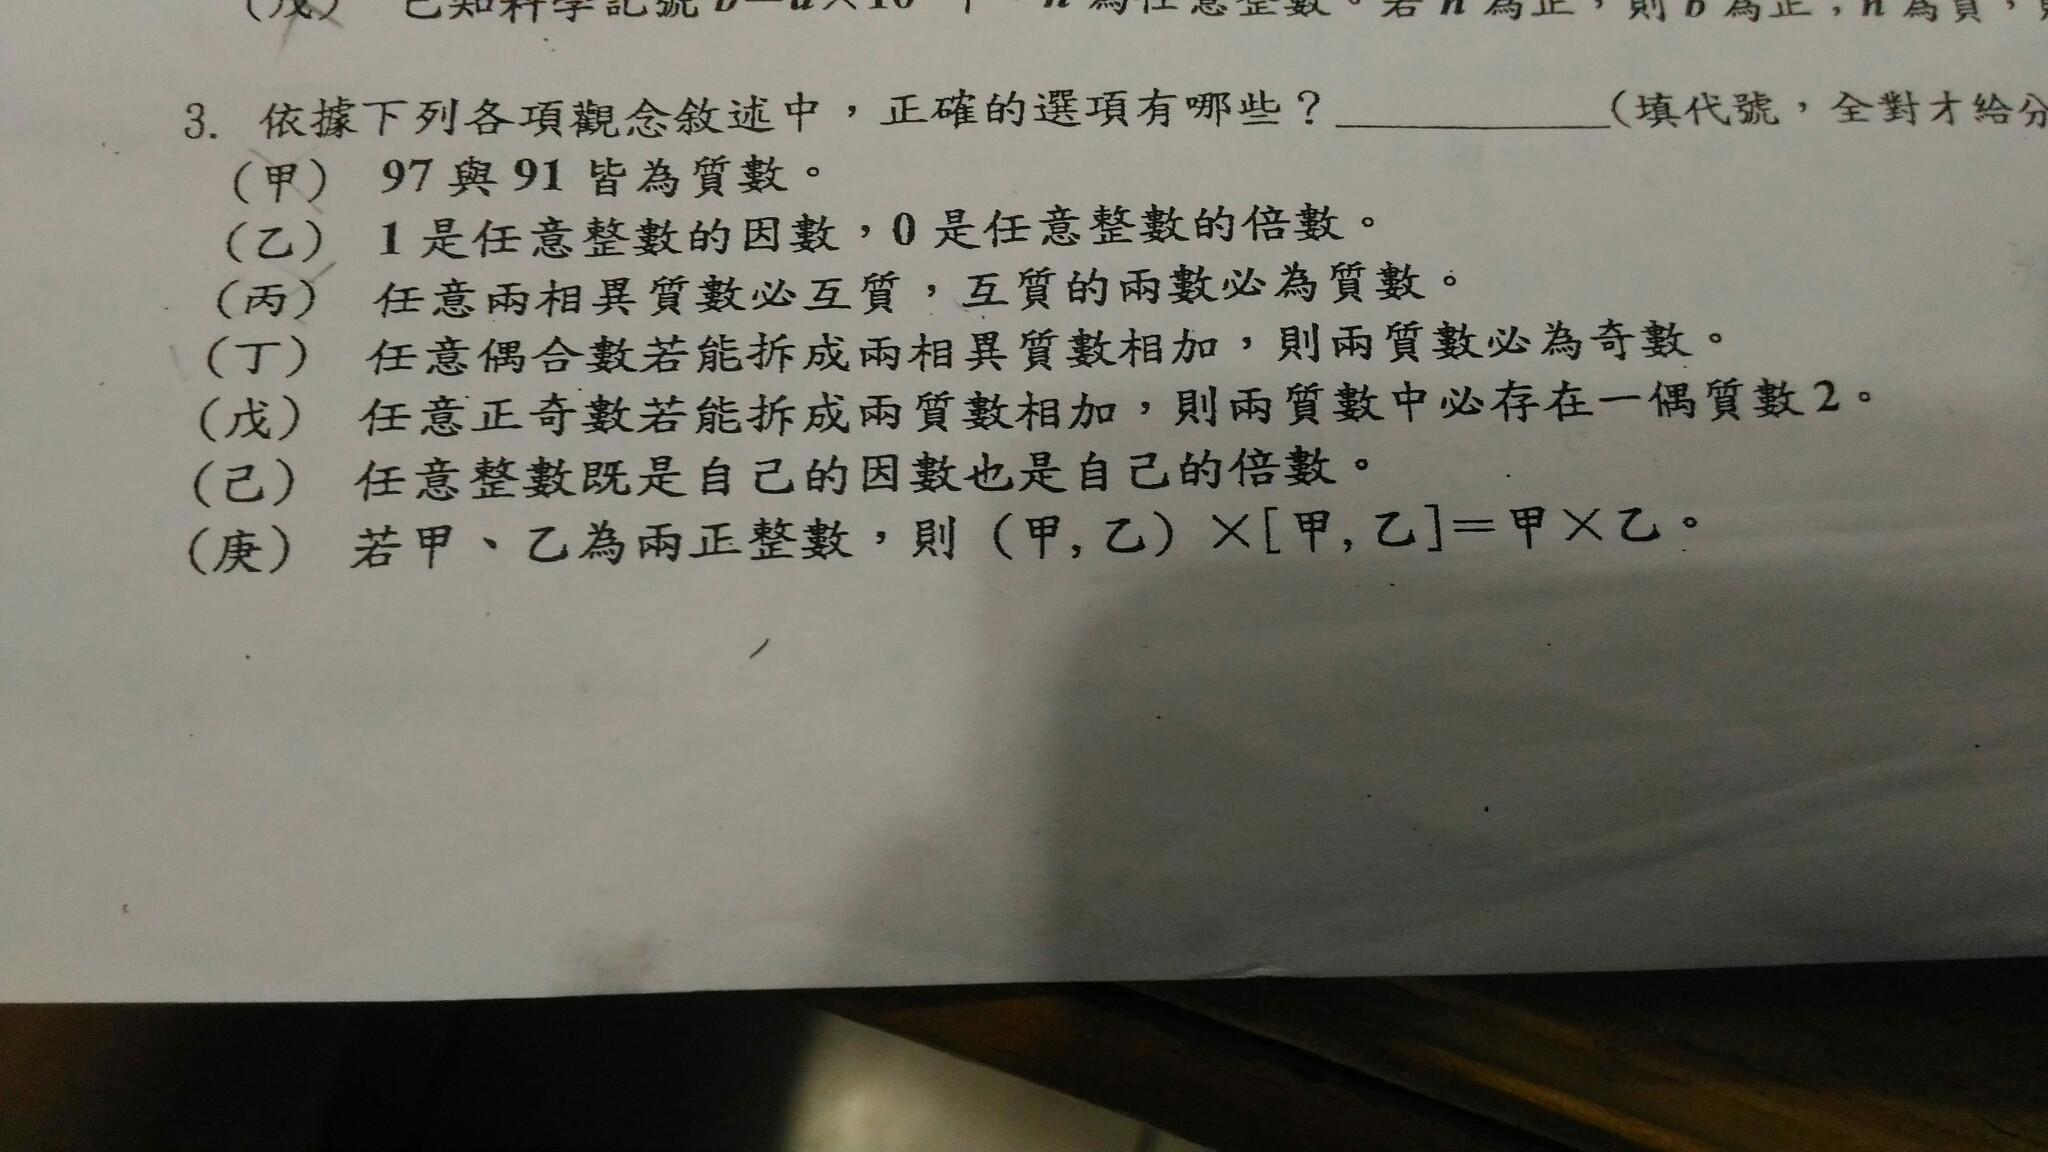 (戊) 已知科學記號 b=a×10 為任意整數。若 n 為正，則 b 為正，n 為負，
3. 依據下列各項觀念敘述中，正確的選項有哪些？__________(填代號，全對才給分
(甲) 97 與 91 皆為質數。
(乙) 1 是任意整數的因數，0 是任意整數的倍數。
(丙) 任意兩相異質數必互質，互質的兩數必為質數。
(丁) 任意偶合數若能拆成兩相異質數相加，則兩質數必為奇數。
(戊) 任意正奇數若能拆成兩質數相加，則兩質數中必存在一偶質數 2。
(己) 任意整數既是自己的因數也是自己的倍數。
(庚) 若甲、乙為兩正整數，則 (甲, 乙) ×[甲, 乙]=甲×乙。